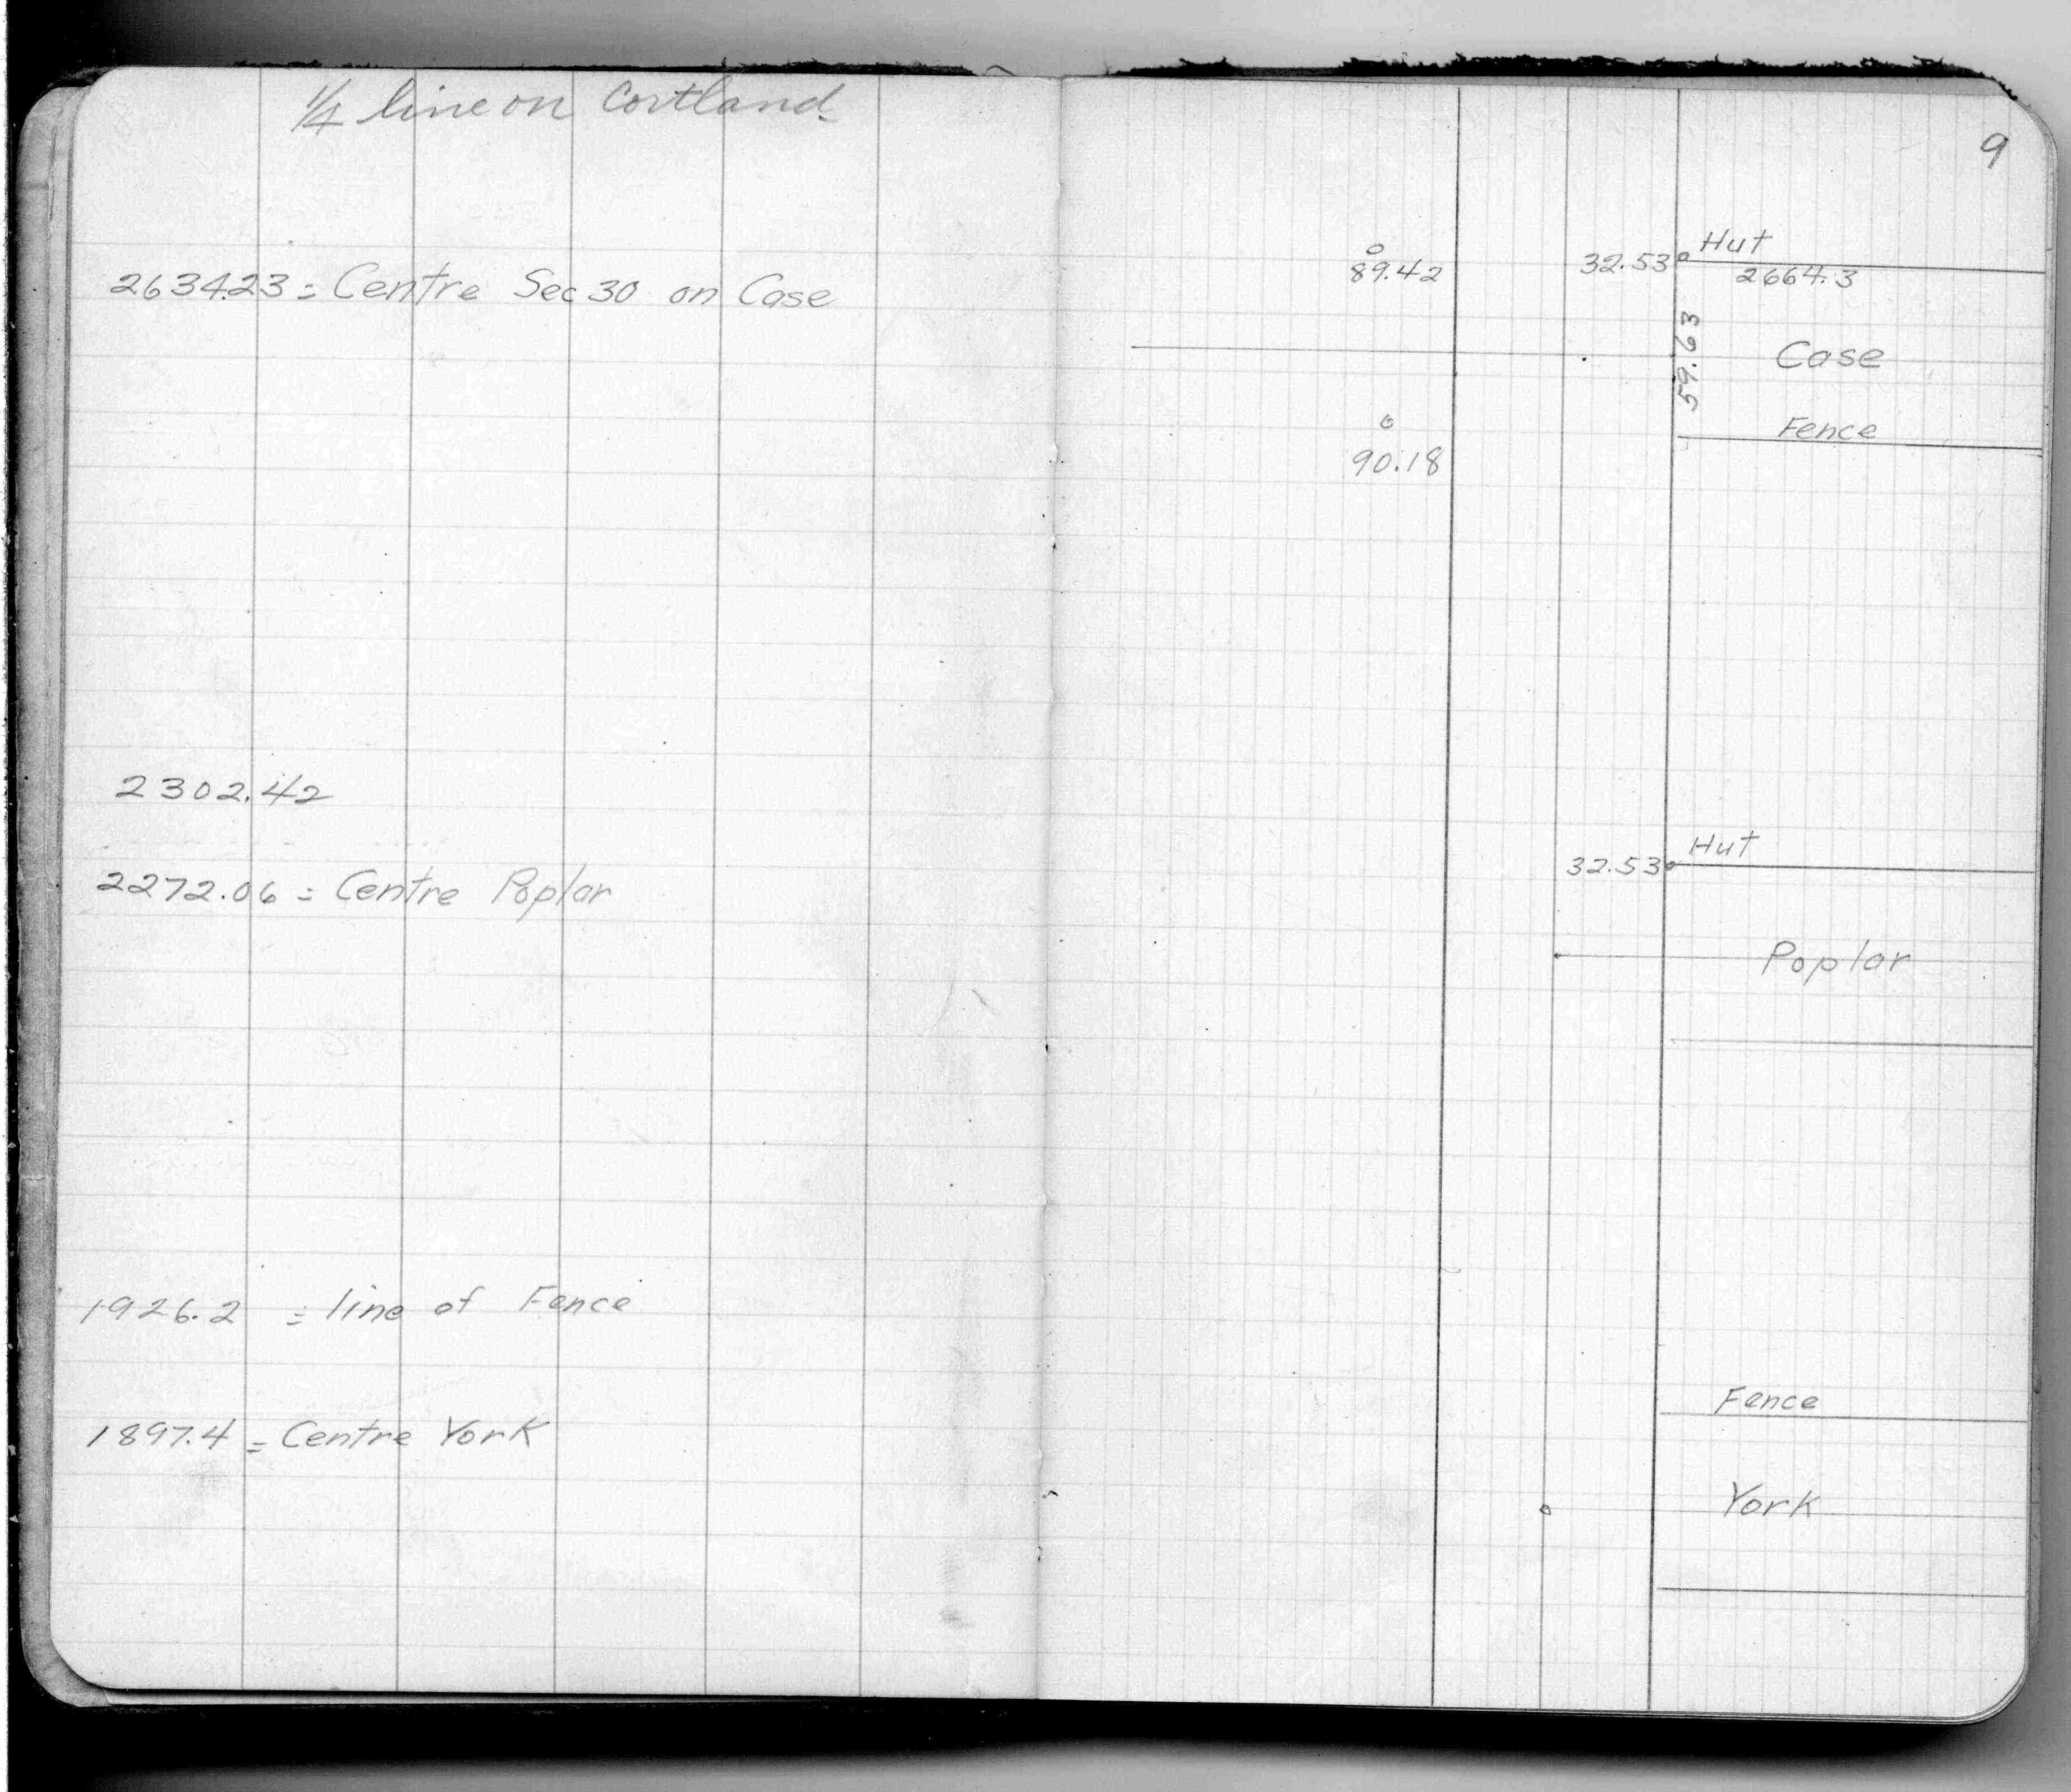 1/4 line on Cortland
2634.23 = Centre Sec 30 on Case
2302.42
2272.06 = Centre Poplar
1926.2 = line of Fence
1897.4 = Centre York
9
89.42
32.53
Hut
2664.3
59.63
Case
Fence
90.18
32.53
Hut
Poplar
Fence
York